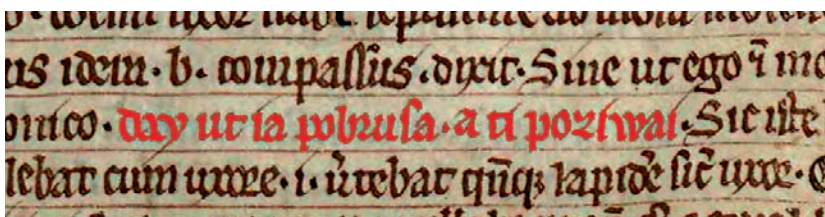 us idem· b· compaſſus· dixit· Sine ut ego ī mo
onico· day ut ia pobruſa· a ti poziwai· Sic iſte
lebat cum uxore· i· ūtebat qn̄q; lapidē ſic̄ uxor·